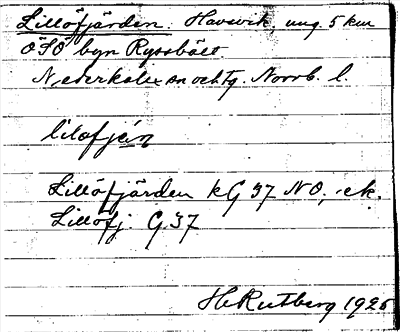 Lillöfjärden. Havsvik, ung. 5 km
ÖSÖ byn Ryssbält.
Nederkalix sn och tg. Norrb. l.
lilafján
Lillöfjärden kG 37 NO, ek.
Lillöfj. G 37
H. Rutberg 1925